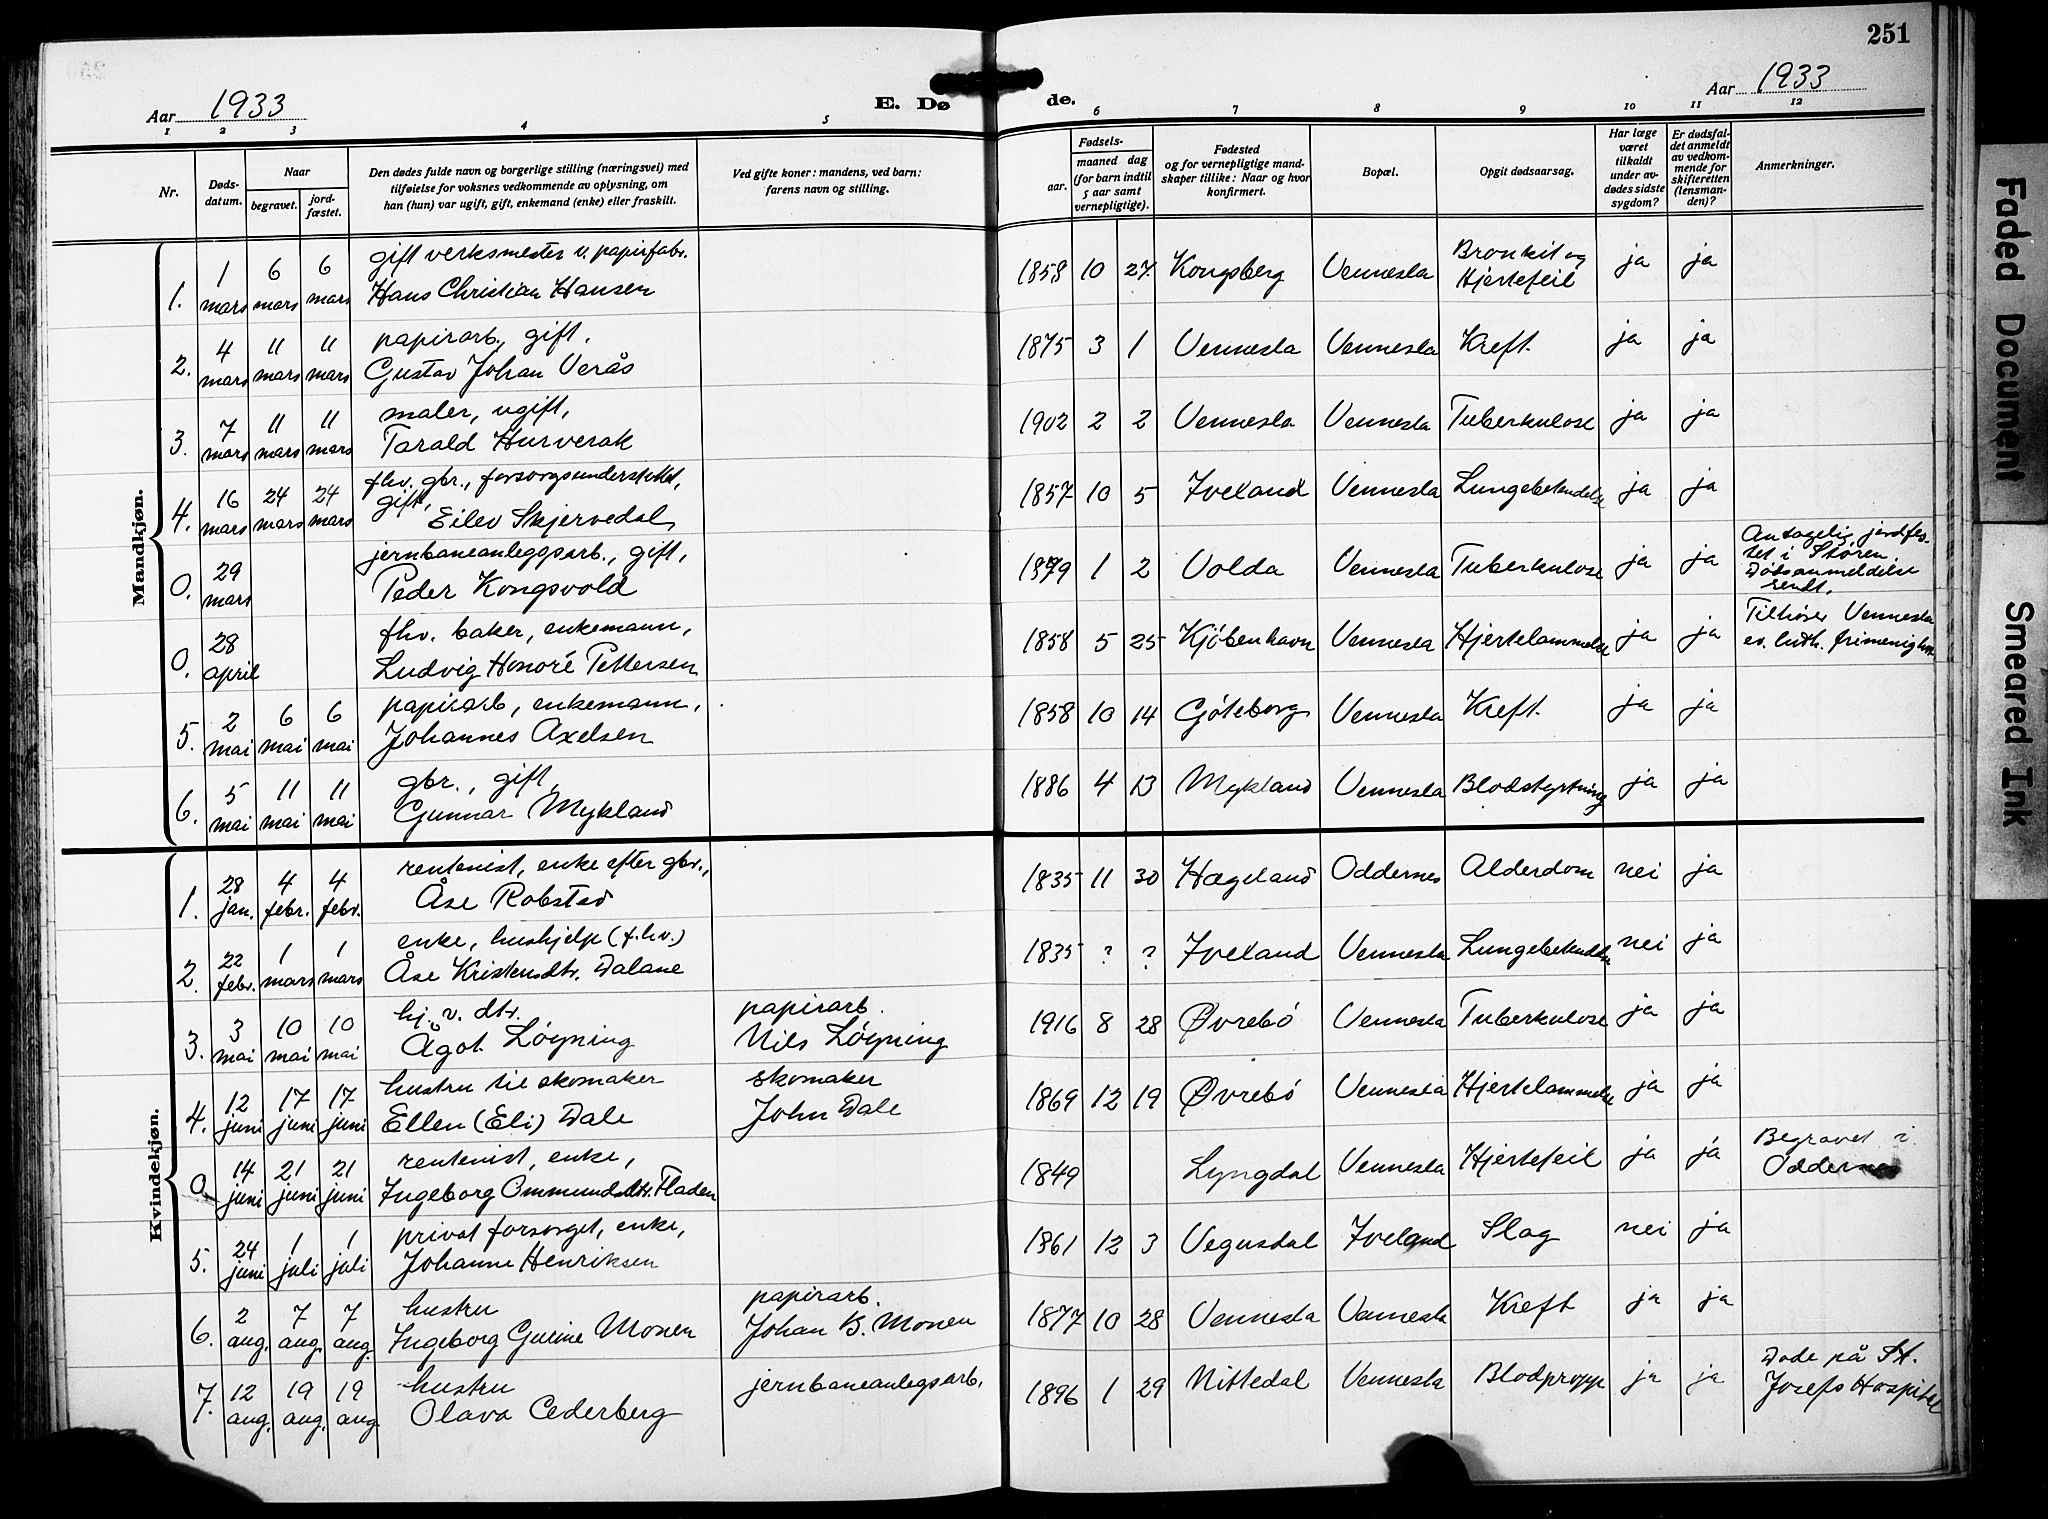 251
Aar 1933
E. Dø
de.
Aar 1933
1 2 3 4 5 6 7 8 9 10 11 12
Nr.
Døds-
datum.
Naar
begravet.
jord-
fæstet.
Den dødes fulde navn og borgerlige stilling (næringsvei) med
tilføielse for voksnes vedkommende av oplysning, om
han (hun) var ugift, gift, enkemand (enke) eller fraskilt.
Ved gifte koner: mandens, ved barn:
farens navn og stilling.
Fødsels-
aar.
maaned dag
(for barn indtil
5 aar samt
vernepligtige).
Fødested
og for vernepligtige mand-
skaper tillike: Naar og hvor
konfirmert.
Bopæl.
Opgit dødsaarsag.
Har læge
været
tilkaldt
under av-
dødes sidste
sygdom?
Er dødsfal-
det anmeldt
av vedkom-
mende for
skifteretten
(lensman-
den)?
Anmerkninger.
Mandkjøn.
gift verksmester v. papirfabr.
1. 1 mars 6 mars 6 mars Hans Christian Hansen 1858 10 27 Kongsberg Vennesla Bronkit og Hjertefeil ja ja
papirarb., gift.
2. 4 mars 11 mars 11 mars Gustav Johan Verås 1875 3 1 Vennesla Vennesla Kreft. ja ja
maler, ugift,
3. 7 mars 11 mars 11 mars Tarald Hurverak 1902 2 2 Vennesla Vennesla Tuberkulose ja ja
fhv. gbr., forsorgsunderstøttet,
gift,
4. 16 mars 24 mars 24 mars Eilev Skjervedal 1857 10 5 Iveland Vennesla Lungebetendelse ja ja
jernbaneanleggsarb., gift,
0. 29 mars Peder Kongsvold 1879 1 2 Volda Vennesla Tuberkulose ja ja
Antagelig jordfes-
tet i Støren.
Dødsanmeldelse
sendt.
fhv. baker, enkemann,
0. 28 april Ludvig Honoré Pettersen 1858 5 25 Kjöbenhavn Vennesla Hjertelammelse ja ja
Tilhører Vennesla
ev. luth. frimenighet.
papirarb, enkemann,
5. 2 mai 6 mai 6 mai Johannes Axelsen 1858 10 14 Göteborg Vennesla Kreft. ja ja
gbr., gift,
6. 5 mai 11 mai 11 mai Gunnar Mykland 1886 4 13 Mykland Vennesla Blodstyrtning ja ja
Kvindekjøn.
rentenist, enke efter gbr.,
1. 28 jan. 4 febr. 4 febr. Åse Robstad 1835 11 30 Hægeland Oddernes Alderdom nei ja
enke, hushjelp (f.hv.)
2. 22 febr. 1 mars 1 mars Åse Kristensdtr. Dalane 1835 ? ? Iveland Vennesla Lungebetendelse nei ja
hj. v. dtr. papirarb.
3. 3 mai 10 mai 10 mai Ågot Löyning Nils Löyning 1916 8 28 Øvrebö Vennesla Tuberkulose ja ja
hustru til skomaker skomaker
4. 12 juni 17 juni 17 juni Ellen (Eli) Dale John Dale 1869 12 19 Øvrebö Vennesla Hjertelammelse ja ja
rentenist, enke,
0 14 juni 21 juni 21 juni Ingeborg Ommundsdtr. Fladen 1849 Lyngdal Vennesla Hjertefeil ja ja
Begravet i
Oddernes
privat forsorget, enke,
5. 24 juni 1 juli 1 juli Johanne Henriksen 1861 12 3 Vegusdal Iveland Slag nei ja
hustru papirarb.
6. 2 aug. 7 aug. 7 aug. Ingeborg Gurine Monen Johan B. Monen 1877 10 28 Vennesla Vennesla Kreft ja ja
hustru jernbaneanlegsarb.
7. 12 aug. 19 aug. 19 aug. Olava Cederberg 1896 1 29 Nittedal Vennesla Blodpropp ja ja
Døde på St.
Josefs Hospital
Faded Document
Smeared Ink